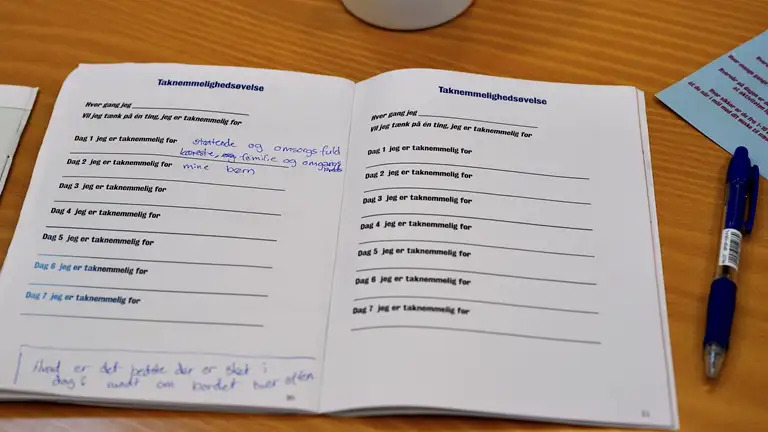 Taknemmelighedsøvelse
Hver gang jeg
Vil jeg tænk på én ting, jeg er taknemmelig for
Dag 1 jeg er taknemmelig for støttende og omsorgsfuld
kæreste, familie og omgangs
kreds
Dag 2 jeg er taknemmelig for mine børn
Dag 3 jeg er taknemmelig for
Dag 4 jeg er taknemmelig for
Dag 5 jeg er taknemmelig for
Dag 6 jeg er taknemmelig for
Dag 7 jeg er taknemmelig for
Hvad er det bedste der er sket i
dag 6 rundt om bordet hver aften
Taknemmelighedsøvelse
Hver gang jeg
Vil jeg tænk på én ting, jeg er taknemmelig for
Dag 1 jeg er taknemmelig for
Dag 2 jeg er taknemmelig for
Dag 3 jeg er taknemmelig for
Dag 4 jeg er taknemmelig for
Dag 5 jeg er taknemmelig for
Dag 6 jeg er taknemmelig for
Dag 7 jeg er taknemmelig for